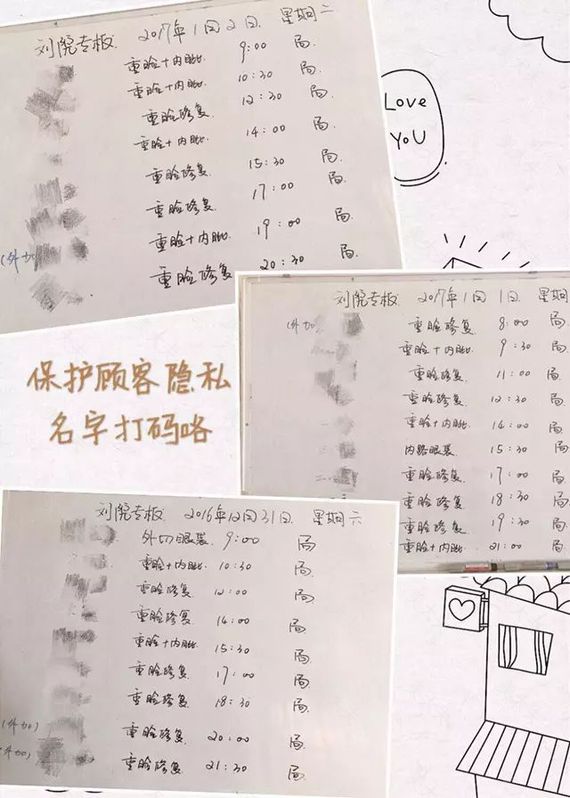 刘院专板 2017年1月2日 星期二
重睑+内眦 9:00 局
重睑+内眦 10:30 局
重睑修复 12:30 局
重睑+内眦 14:00 局
重睑修复 15:30 局
重睑修复 17:00 局
(外加) 重睑+内眦 19:00 局
重睑修复 20:30 局
Love
YoU
刘院专板 2017年1月1日 星期
(外加) 重睑修复 8:00 局
重睑+内眦 9:30 局
重睑修复 11:00 局
重睑修复 12:30 局
重睑+内眦 14:00 局
内路眼袋 15:30 局
重睑修复 17:00 局
重睑修复 18:30 局
重睑修复 19:30 局
重睑+内眦 21:00 局
保护顾客隐私
名字打码咯
刘院专板 2016年12月31日 星期六
外切眼袋 9:00 局
重睑+内眦 10:30 局
重睑修复 12:00 局
重睑修复 14:00 局
重睑+内眦 15:30 局
重睑修复 17:00 局
重睑修复 18:30 局
(外加) 重睑修复 20:00 局
(外加) 重睑修复 21:30 局